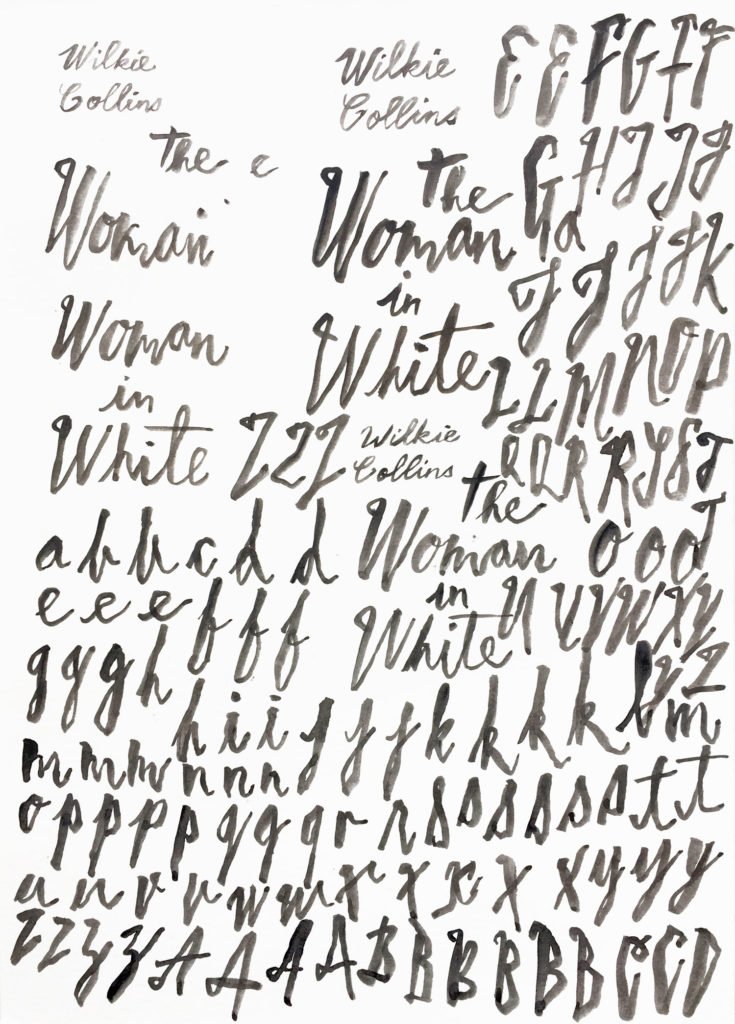 Wilkie
Collins
the e
Woman
Woman
in
White
Wilkie
Collins
the
Woman
in
White
E E F G I F
G H I J J
G a
J J J J K
Z L M N O P
Q Q R R S S T
Z Z Z
Wilkie
Collins
the
Woman
in
White
o o d
U V V W X Y
Y Z
a b b c d d
e e e f f f
g g g h h i i j j j k k k k l m
m m m n n n
o p p p p q q q r r s s s s s s t t
u u v v w w x x x x x y y y
z z z z A A A A B B B B B B C C D